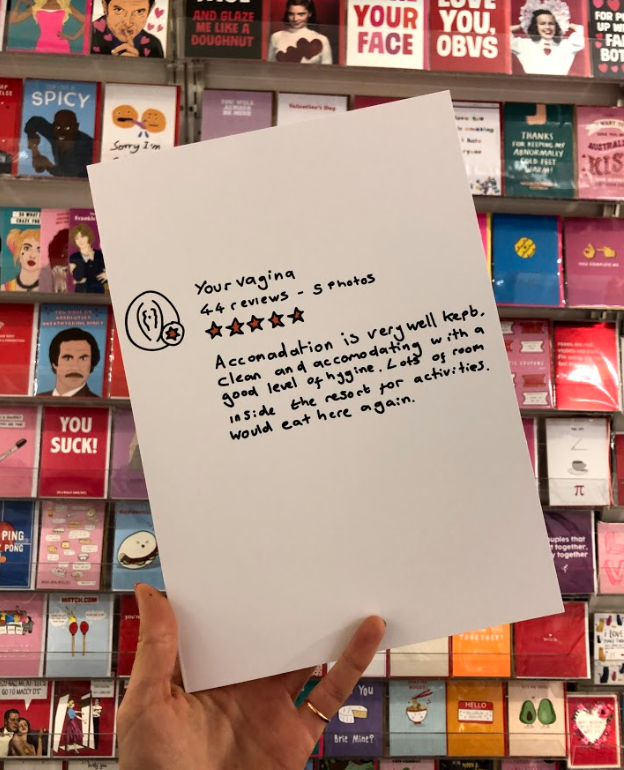 AND GLAZE
ME LIKE A
DOUGHNUT
YOUR
FACE
LOVE
YOU,
OBVS
SPICY
Sorry I'm
Valentine's Day
THANKS
FOR KEEPING MY
ABNORMALLY
COLD FEET
WARM!
KISS
Your vagina
44 reviews - 5 Photos
Acconadation is very well kept.
clean and accomodating with a
good level of hygine. Lots of room
inside the resort for activities.
would eat here again.
YOU
SUCK!
PING
PONG
π
uples that
t together,
y together
MATCH.COM
TOGETHER!
GO TO MACCY D'S
You
Brie Mine?
HELLO